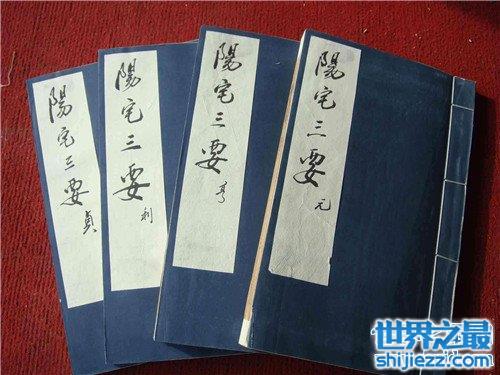 陽宅三要 貞
陽宅三要 利
陽宅三要 亨
陽宅三要 元
世界之最
shijiezz!.com